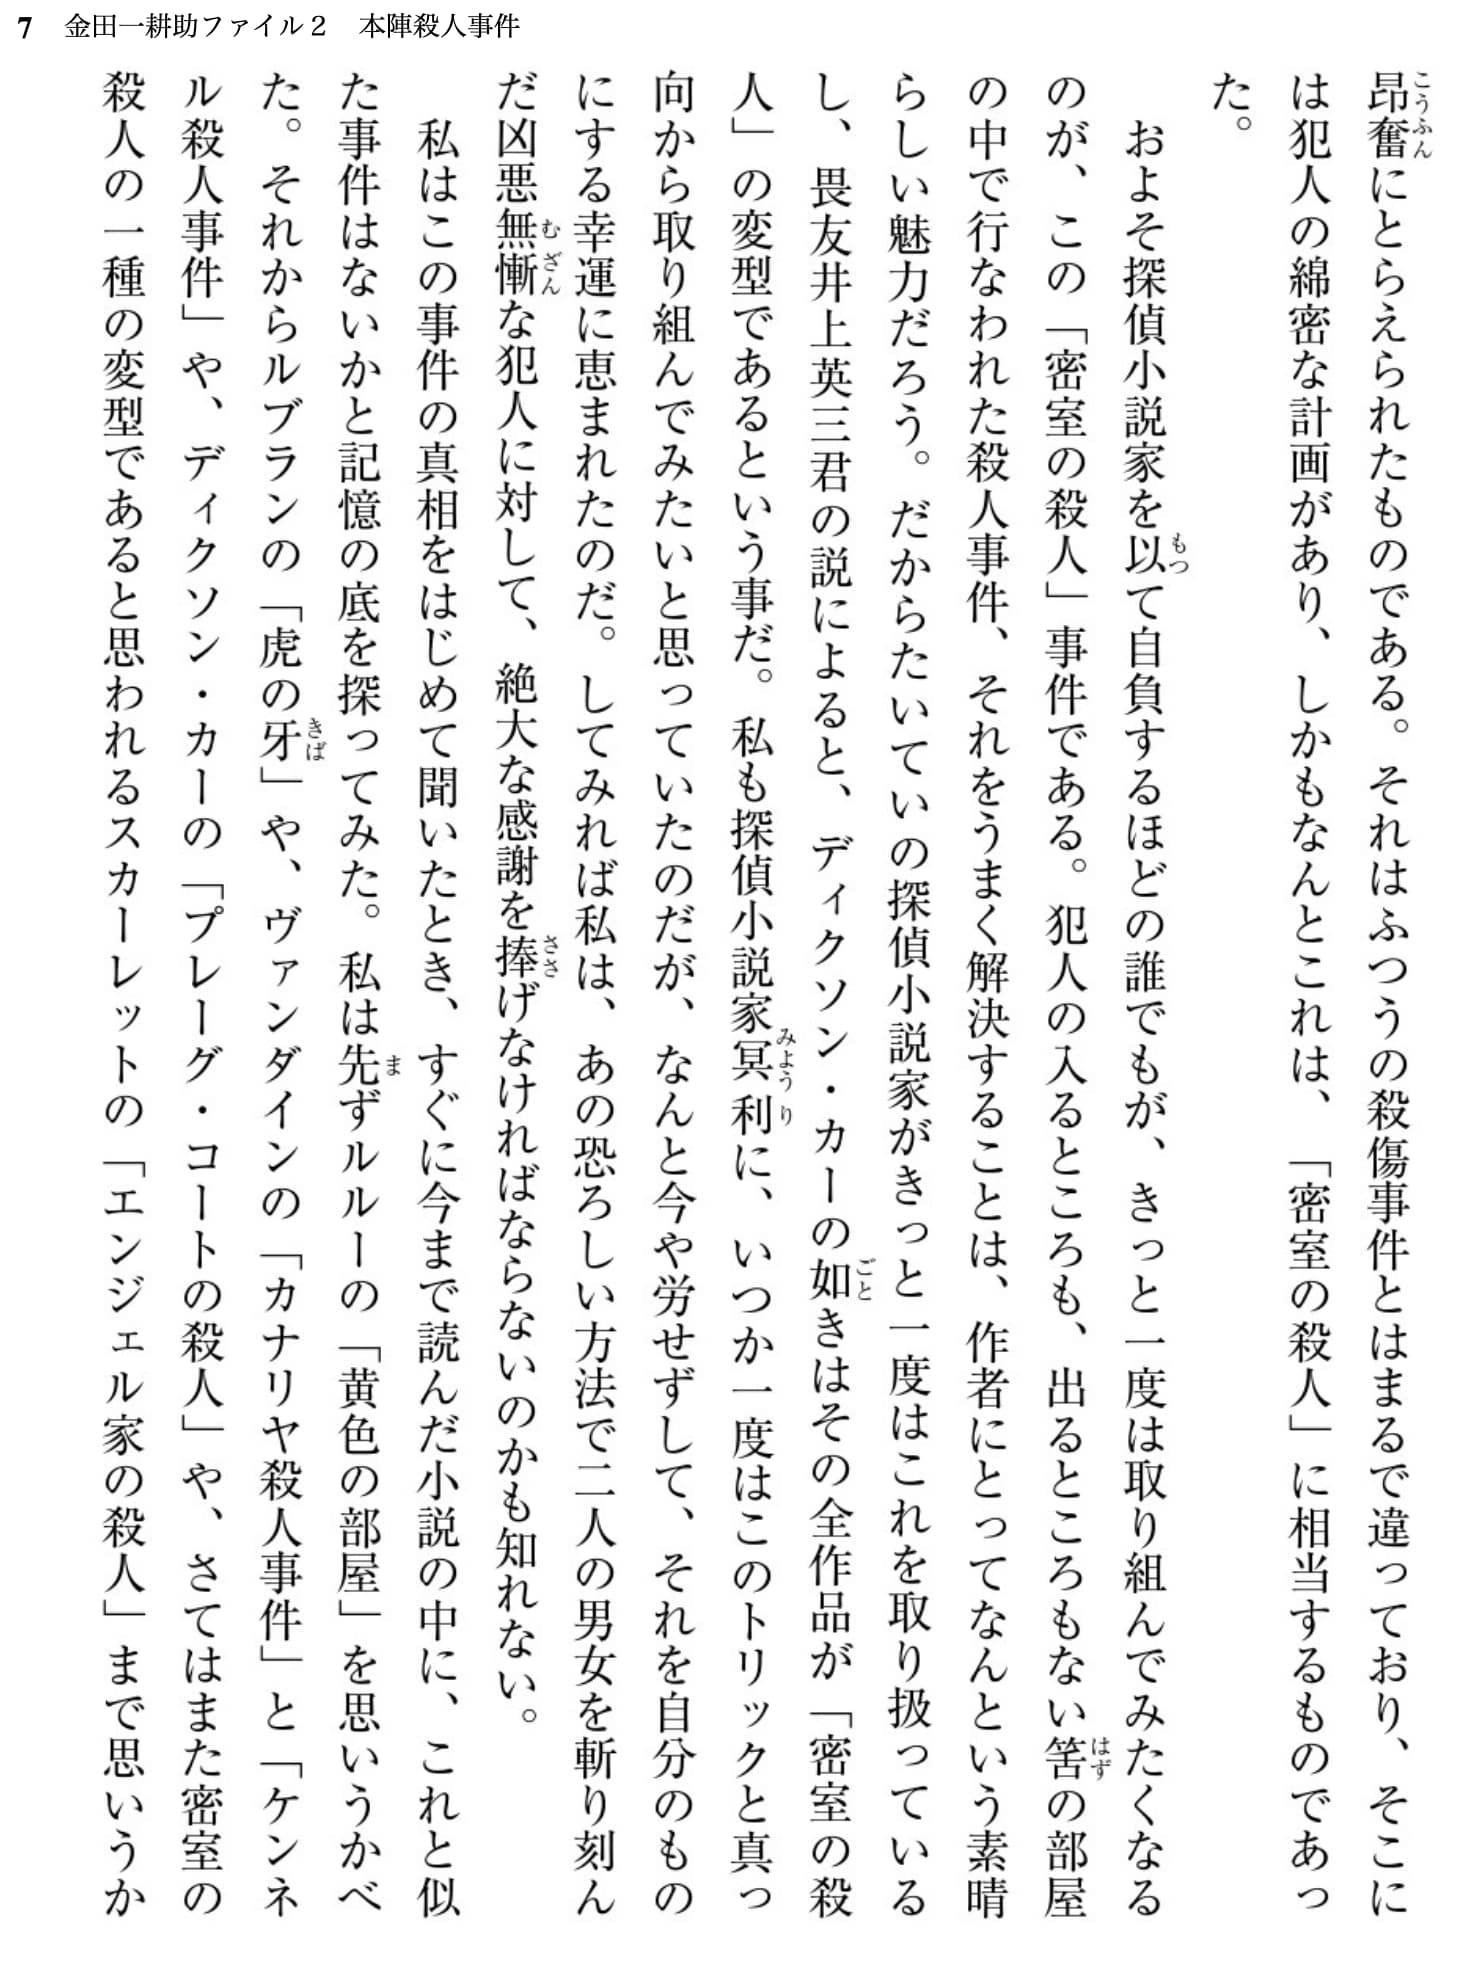 7 金田一耕助ファイル２　本陣殺人事件
昂奮にとらえられたものである。それはふつうの殺傷事件とはまるで違っており、そこに
は犯人の綿密な計画があり、しかもなんとこれは、「密室の殺人」に相当するものであっ
た。
　およそ探偵小説家を以て自負するほどの誰でもが、きっと一度は取り組んでみたくなる
のが、この「密室の殺人」事件である。犯人の入るところも、出るところもない筈の部屋
の中で行なわれた殺人事件、それをうまく解決することは、作者にとってなんという素晴
らしい魅力だろう。だからたいていの探偵小説家がきっと一度はこれを取り扱っている
し、畏友井上英三君の説によると、ディクソン・カーの如きはその全作品が「密室の殺
人」の変型であるという事だ。私も探偵小説家冥利に、いつか一度はこのトリックと真っ
向から取り組んでみたいと思っていたのだが、なんと今や労せずして、それを自分のもの
にする幸運に恵まれたのだ。してみれば私は、あの恐ろしい方法で二人の男女を斬り刻ん
だ凶悪無慚な犯人に対して、絶大な感謝を捧げなければならないのかも知れない。
　私はこの事件の真相をはじめて聞いたとき、すぐに今まで読んだ小説の中に、これと似
た事件はないかと記憶の底を探ってみた。私は先ずルルーの「黄色の部屋」を思いうかべ
た。それからルブランの「虎の牙」や、ヴァンダインの「カナリヤ殺人事件」と「ケンネ
ル殺人事件」や、ディクソン・カーの「プレーグ・コートの殺人」や、さてはまた密室の
殺人の一種の変型であると思われるスカーレットの「エンジェル家の殺人」まで思いうか